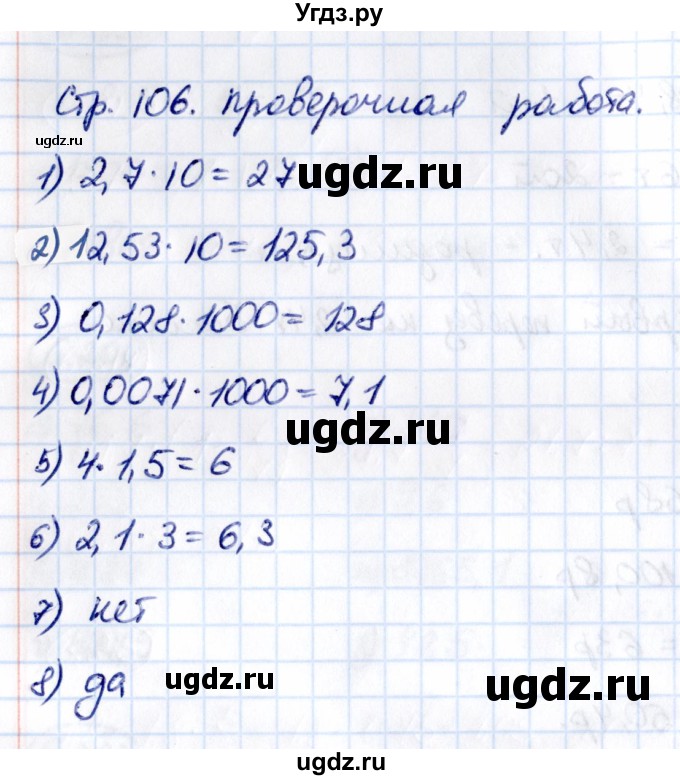 Угдз.ру
Стр. 106. проверочная работа.
ugdz.ru
1) 2,7·10=27
ugdz.ru
2) 12,53·10=125,3
3) 0,128·1000=128
4) 0,0071·1000=7,1
ugdz.ru
5) 4·1,5=6
6) 2,1·3=6,3
7) нет
8) да
ugdz.ru
ugdz.ru
ugdz.ru